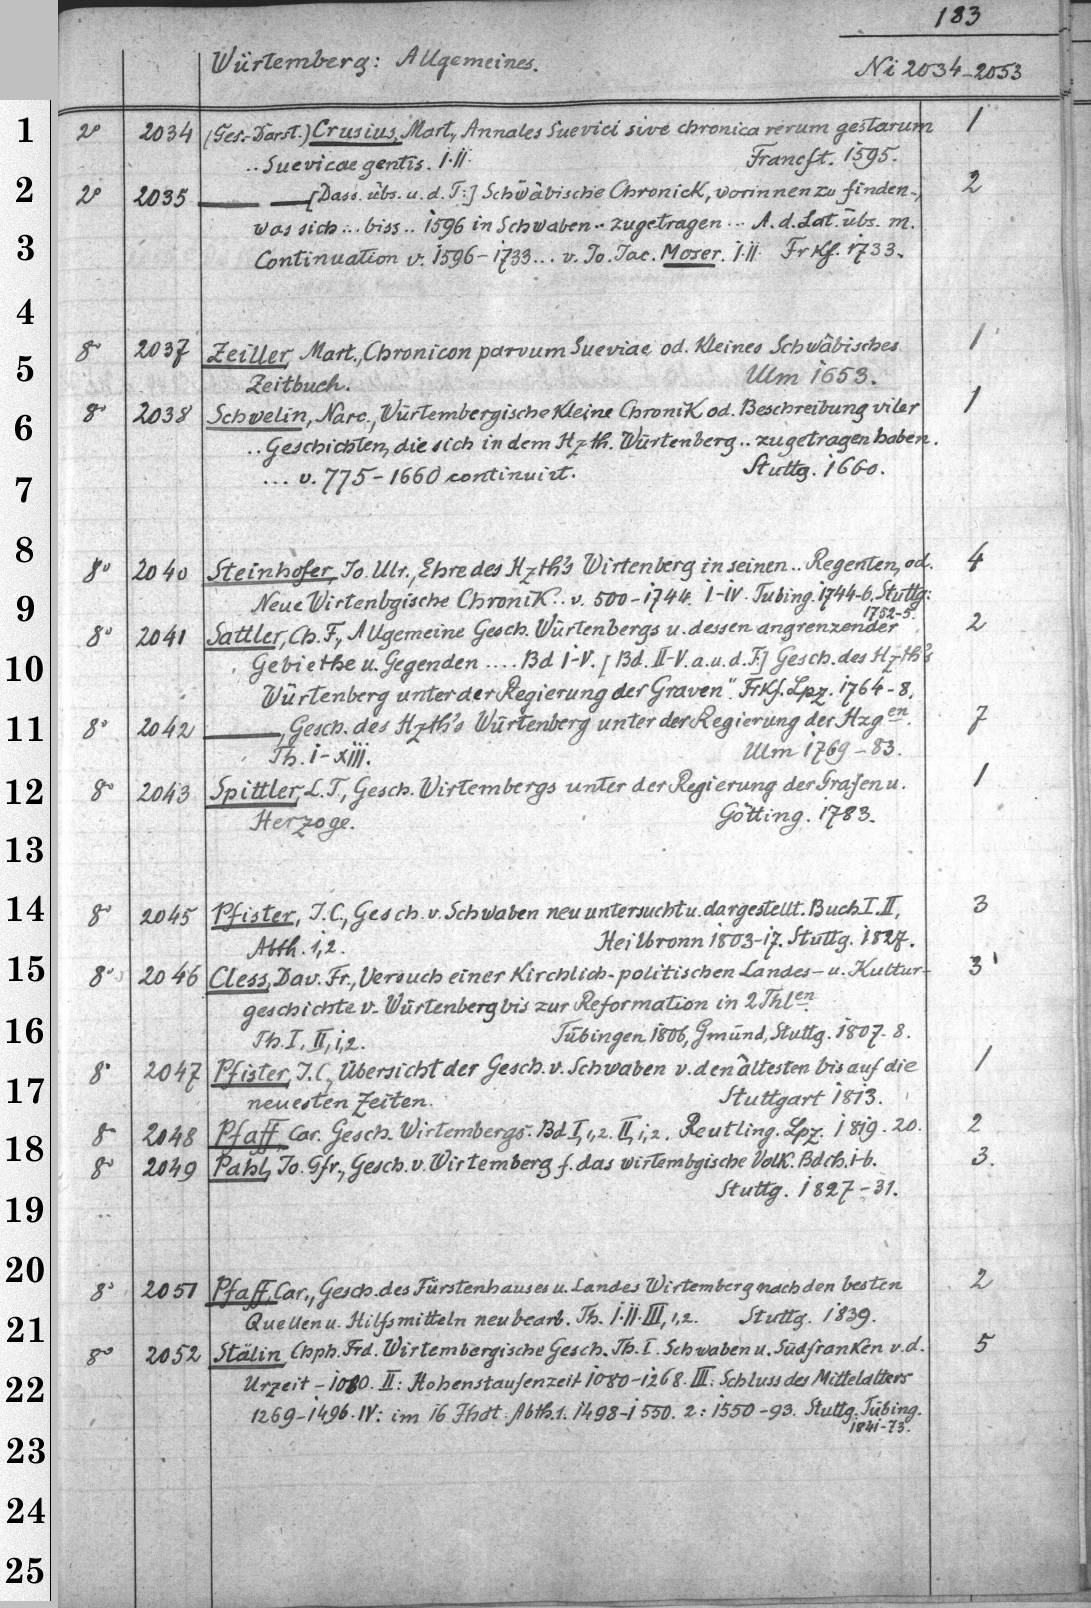 183
Würtemberg: Allgemeines.
Ni 2034-2053
1
2° 2034 (Ges.-Darst.) Crusius, Mart., Annales Suevici sive chronica rerum gestarum 1
.. Suevicae gentis. I.II. Francft. 1595.
2
2° 2035 — — [Dass. übs. u. d. T:] Schwäbische Chronick, worinnen zu finden-, 2
was sich ... biss .. 1596 in Schwaben .. zugetragen ... A. d. Lat. übs. m.
3
Continuation v. 1596-1733... v. Jo. Jac. Moser. I.II. Frkf. 1733.
4
8° 2037 Zeiller, Mart., Chronicon parvum Sueviae od. Kleines Schwäbisches 1
5
Zeitbuch. Ulm 1653.
8° 2038 Schwelin, Narc., Würtembergische Kleine Chronik od. Beschreibung viler 1
6
.. Geschichten, die sich in dem Hzth. Würtenberg .. zugetragen haben.
... v. 775-1660 continuirt. Stuttg. 1660.
7
8
8° 2040 Steinhofer, Jo. Ulr., Ehre des Hzth's Wirtenberg in seinen .. Regenten, od. 4
9
Neue Wirtenbgische Chronik .. v. 500-1744. I-IV. Tubing. 1744-6. Stuttg:
1752-5.
8° 2041 Sattler, Ch. F., Allgemeine Gesch. Würtenbergs u. dessen angrenzender 2
10
Gebiethe u. Gegenden .... Bd I-V. [Bd. II-V. a. u. d. T.] Gesch. des Hzth's
Würtenberg unter der Regierung der Graven". Frkf. Lpz. 1764-8.
11
8° 2042 —, Gesch. des Hzth's Würtenberg unter der Regierung der Hzgen. 7
Th. I-XIII. Ulm 1769-83.
12
8° 2043 Spittler, L. T., Gesch. Wirtembergs unter der Regierung der Grafen u. 1
Herzoge. Götting. 1783.
13
14
8° 2045 Pfister, J. C., Gesch. v. Schwaben neu untersucht u. dargestellt. Buch I.II, 3
Abth. 1,2. Heilbronn 1803-17. Stuttg. 1827.
15
8° 2046 Cless, Dav. Fr., Versuch einer Kirchlich-politischen Landes- u. Kultur- 3
geschichte v. Würtenberg bis zur Reformation in 2 Thlen.
16
Th. I, II, 1,2. Tübingen 1806, Gmünd, Stuttg. 1807-8.
8° 2047 Pfister, J. C., Übersicht der Gesch. v. Schwaben v. den ältesten bis auf die 1
17
neuesten Zeiten. Stuttgart 1813.
8° 2048 Pfaff, Car. Gesch. Wirtembergs. Bd I,1,2. II,1,2. Reutling. Lpz. 1819.20. 2
18
8° 2049 Pahl, Jo. Gfr., Gesch. v. Wirtemberg f. das wirtembgische Volk. Bdch. 1-6. 3.
Stuttg. 1827-31.
19
20
8° 2051 Pfaff, Car., Gesch. des Fürstenhauses u. Landes Wirtemberg nach den besten 2
21
Quellen u. Hilfsmitteln neu bearb. Th. I.II.III,1,2. Stuttg. 1839.
8° 2052 Stälin, Chph. Frd. Wirtembergische Gesch. Th. I. Schwaben u. Südfranken v. d. 5
22
Urzeit - 1080. II: Hohenstaufenzeit 1080-1268. III: Schluss des Mittelalters
1269-1496. IV: im 16. Jhdt. Abth. 1. 1498-1550. 2: 1550-93. Stuttg. Tübing.
1841-73.
23
24
25